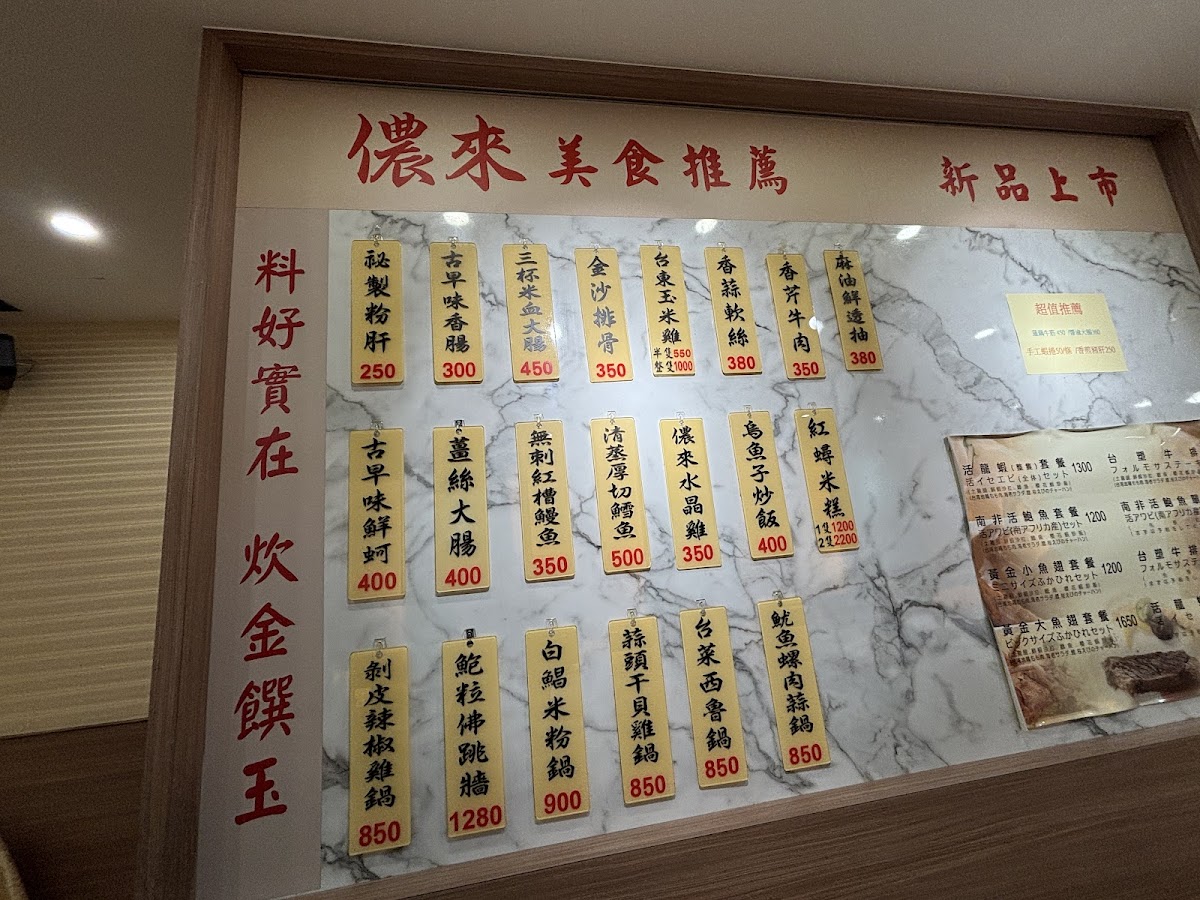 儂來美食推薦
新品上市
料好實在 炊金饌玉
祕製粉肝 250
古早味香腸 300
三杯米血大腸 450
金沙排骨 350
台東玉米雞 半隻550 整隻1000
香蒜軟絲 380
香芹牛肉 350
麻油鮮透抽 380
古早味鮮蚵 400
薑絲大腸 400
無刺紅糟鰻魚 350
清蒸厚切鱈魚 500
儂來水晶雞 350
烏魚子炒飯 400
紅蟳米糕 1隻1200 2隻2200
剝皮辣椒雞鍋 850
鮑粒佛跳牆 1280
白鯧米粉鍋 900
蒜頭干貝雞鍋 850
台菜西魯鍋 850
魷魚螺肉蒜鍋 850
超值推薦
活龍蝦(整隻)套餐 1300
活イセエビ(全体)セット
南非活鮑魚套餐 1200
活アワビ(南アフリカ産)セット
黃金小魚翅套餐 1200
ミニサイズふかひれセット
黃金大魚翅套餐 1650
ビックサイズふかひれセット
台塑牛排
フォルモサステー
南非活鮑魚單
台塑牛排
フォルモサステ
活龍